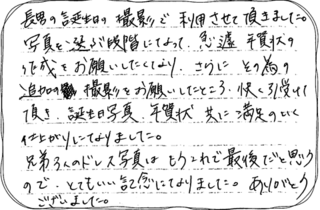 長男の誕生日の撮影で利用させて頂きました。
写真を選ぶ段階になって、急遽年賀状の
作成をお願いしたくなり、さらに その為の
追加の 撮影をお願いしたところ、快く引受けて
頂き、誕生日写真、年賀状 共に満足のいく
仕上がりになりました。
兄弟3人のドレス写真は もうこれで最後だと思う
ので、とてもいい記念になりました。ありがとう
ございました。